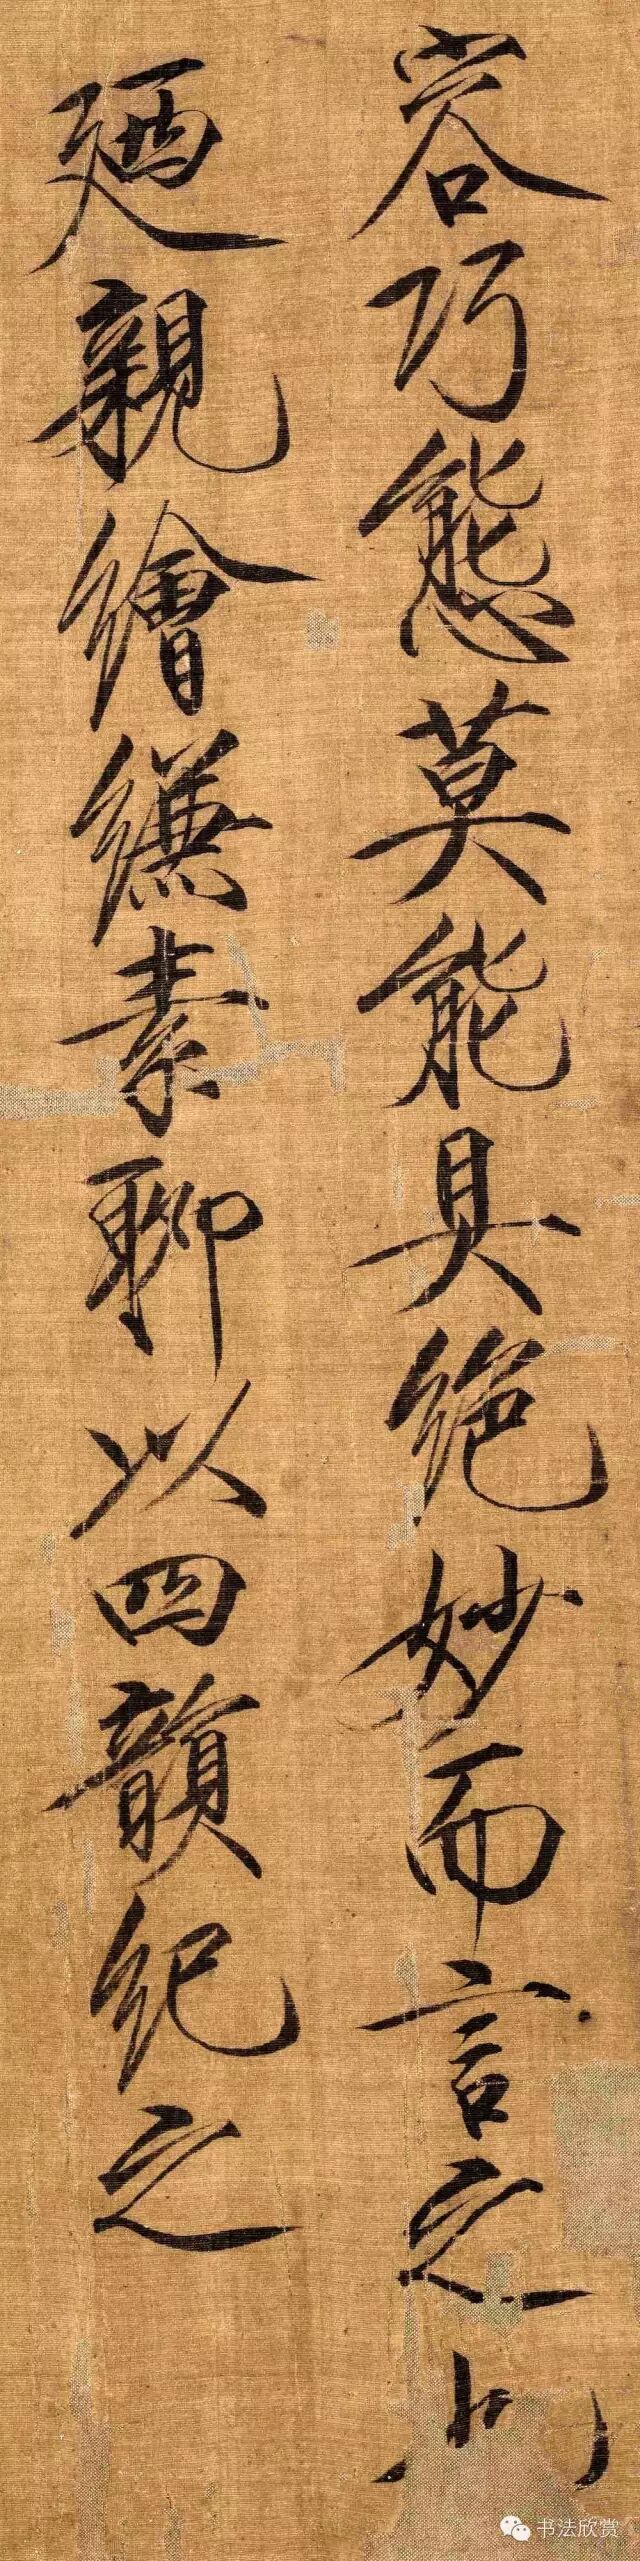 容巧態莫能具絶妙而言之也
廼親繪縑素聊以四韻紀之
书法欣赏